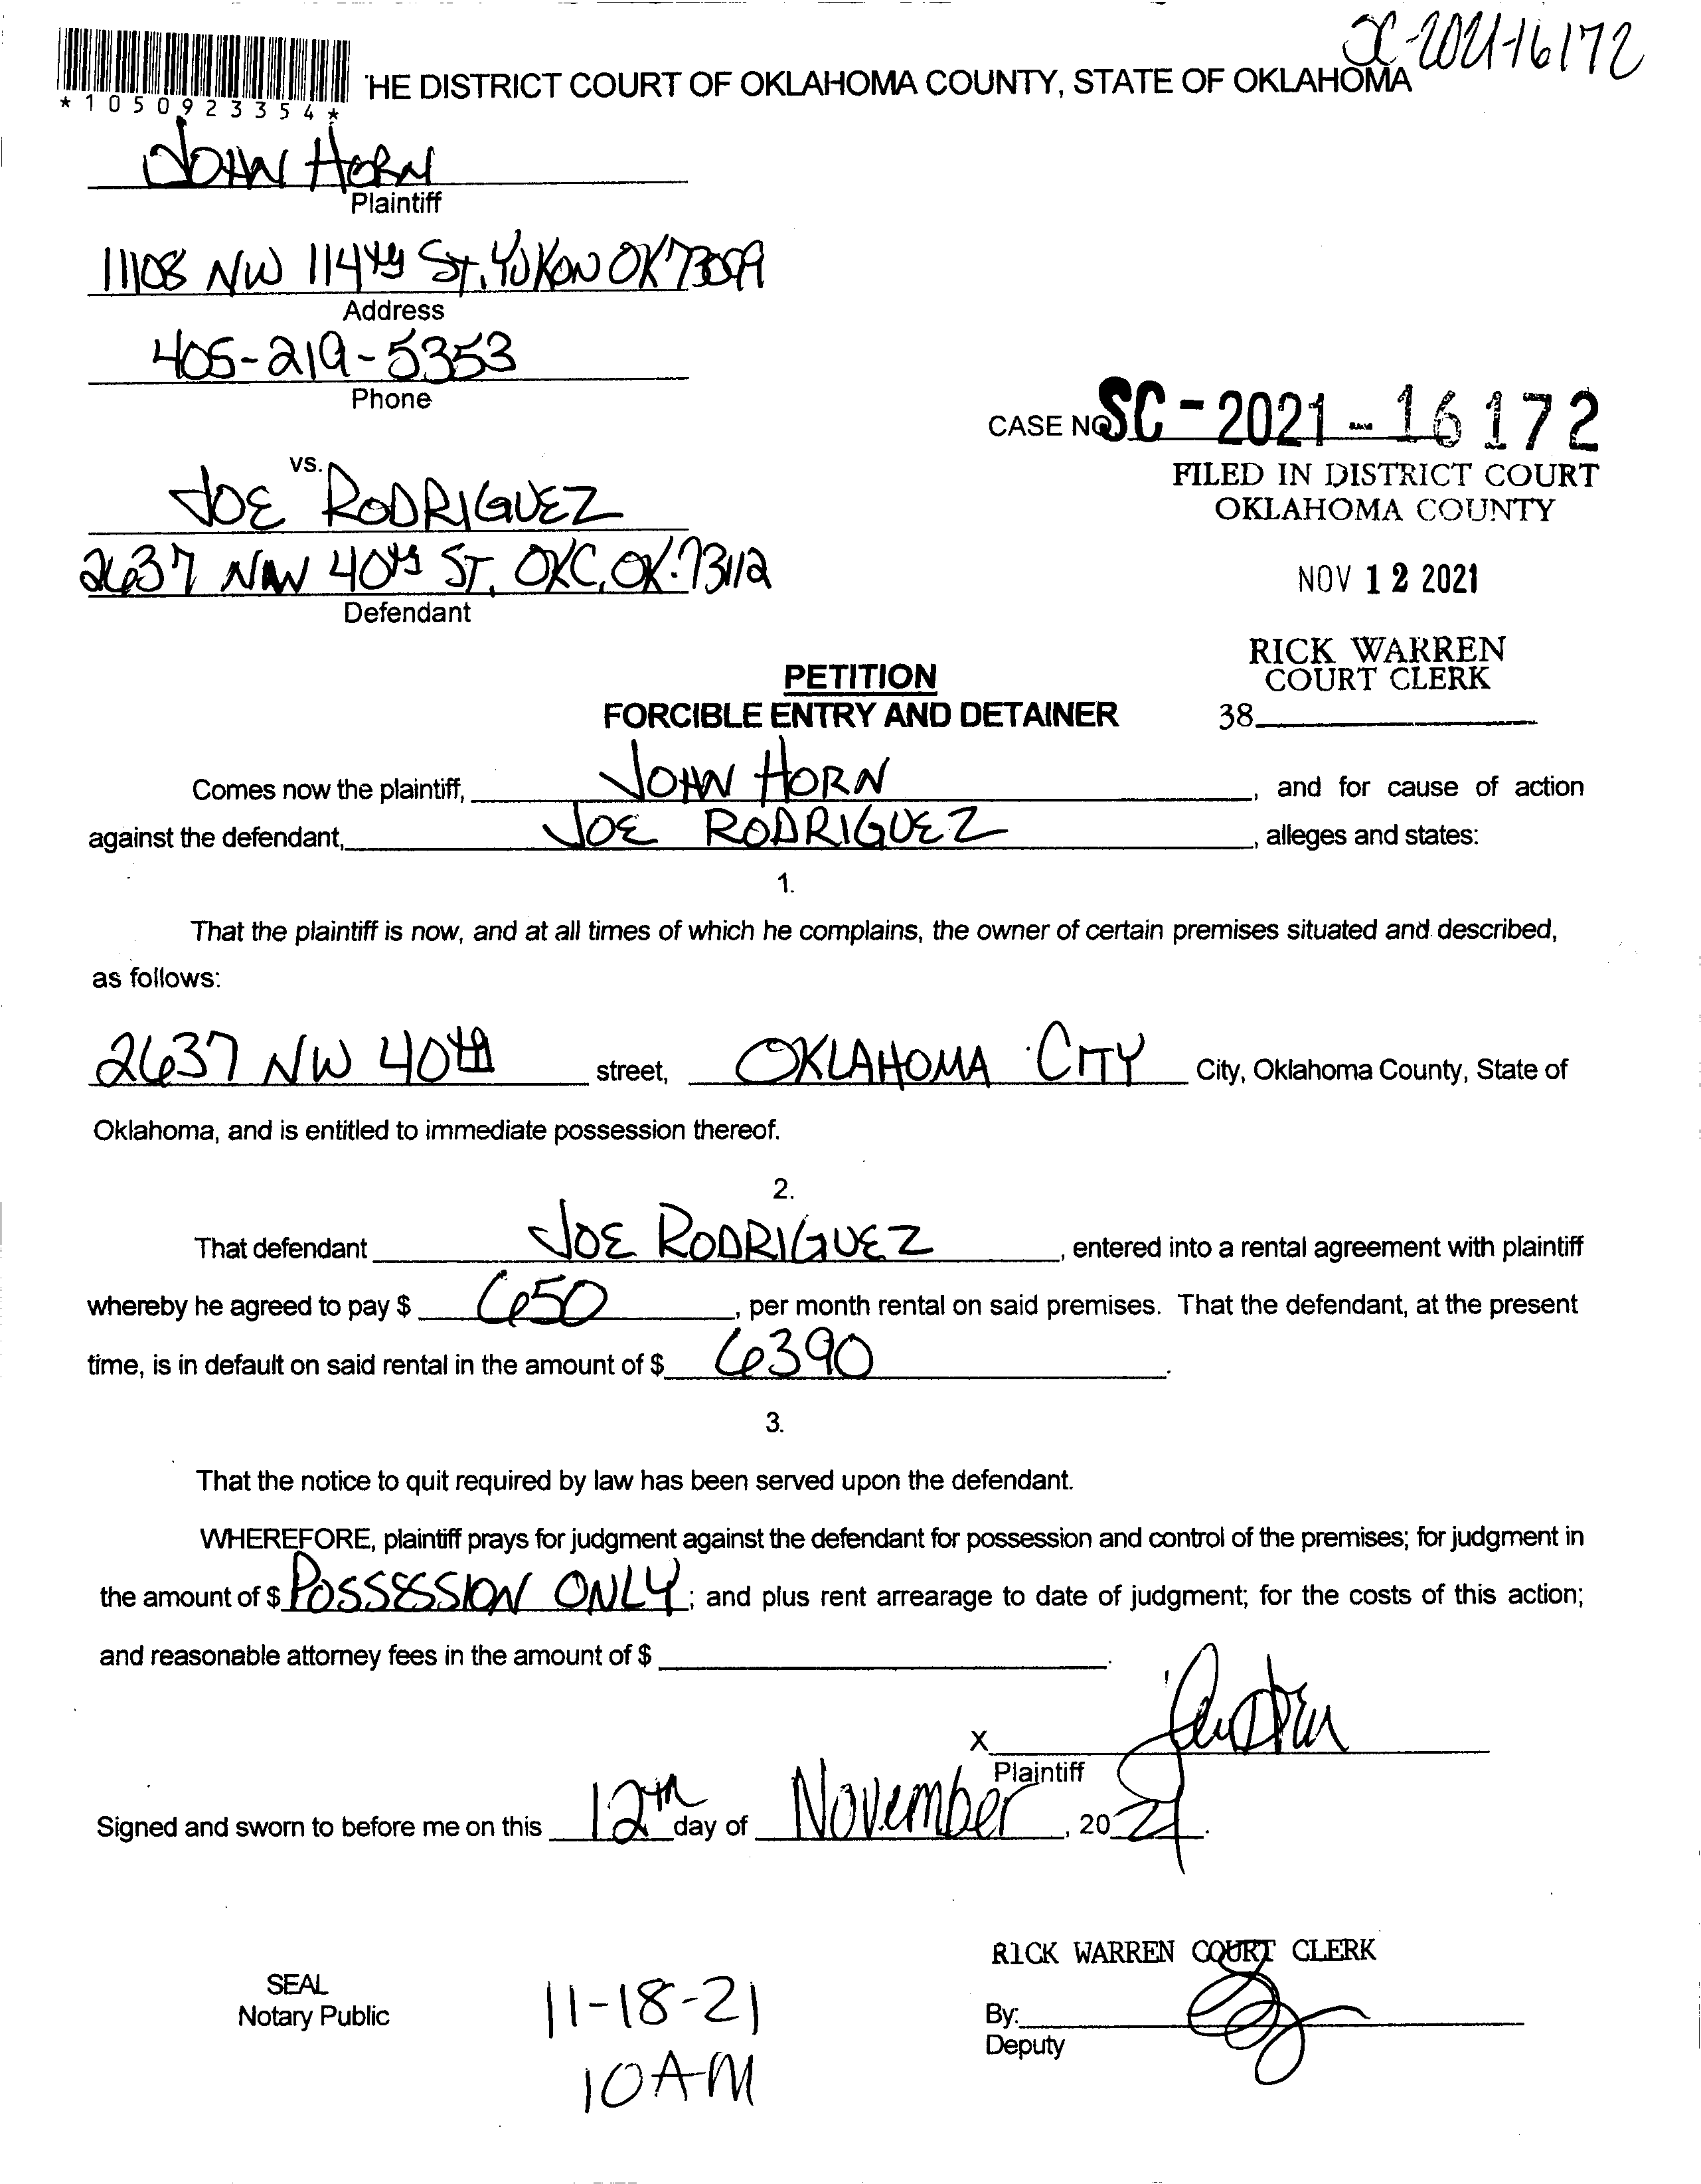 SC-2021-16172
*1050923354*
'HE DISTRICT COURT OF OKLAHOMA COUNTY, STATE OF OKLAHOMA
JOHN HORN
Plaintiff
11108 NW 114th ST, YUKON OK 73099
Address
405-219-5353
Phone
CASE NO. SC-2021-16172
FILED IN DISTRICT COURT
OKLAHOMA COUNTY
vs.
JOE RODRIGUEZ
2637 NW 40th ST, OKC, OK. 73112
Defendant
NOV 12 2021
RICK WARREN
COURT CLERK
38
PETITION
FORCIBLE ENTRY AND DETAINER
Comes now the plaintiff, JOHN HORN, and for cause of action
against the defendant, JOE RODRIGUEZ, alleges and states:
1.
That the plaintiff is now, and at all times of which he complains, the owner of certain premises situated and described,
as follows:
2637 NW 40th street, OKLAHOMA CITY City, Oklahoma County, State of
Oklahoma, and is entitled to immediate possession thereof.
2.
That defendant JOE RODRIGUEZ, entered into a rental agreement with plaintiff
whereby he agreed to pay $ 650, per month rental on said premises. That the defendant, at the present
time, is in default on said rental in the amount of $ 6390.
3.
That the notice to quit required by law has been served upon the defendant.
WHEREFORE, plaintiff prays for judgment against the defendant for possession and control of the premises; for judgment in
the amount of $ POSSESSION ONLY; and plus rent arrearage to date of judgment; for the costs of this action;
and reasonable attorney fees in the amount of $ .
X
Plaintiff
Signed and sworn to before me on this 12th day of November, 2021.
RICK WARREN COURT CLERK
SEAL
Notary Public
11-18-21
10AM
By:
Deputy